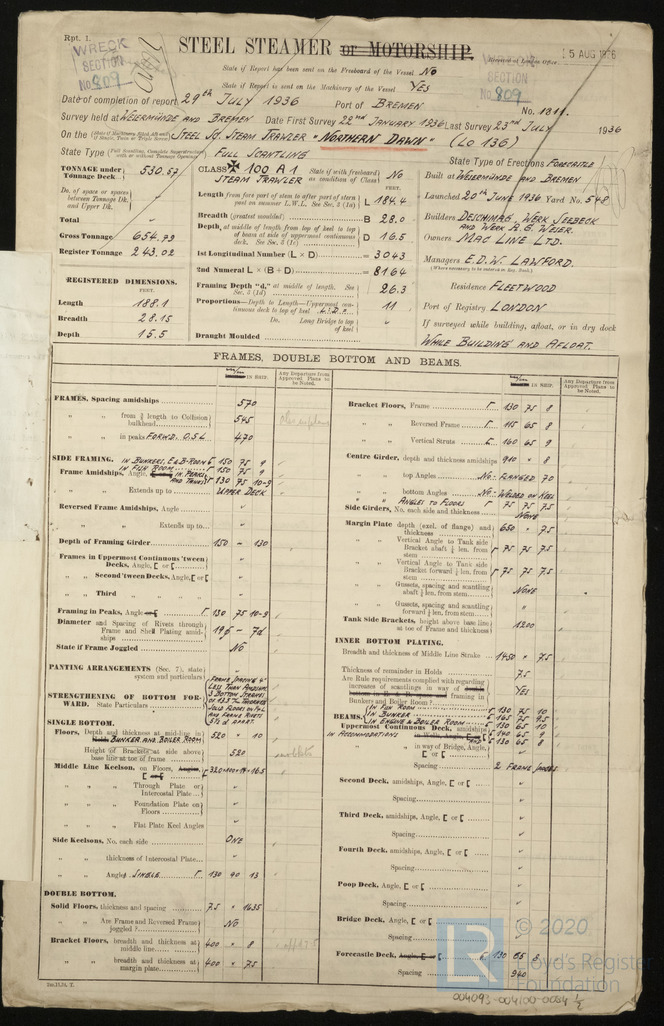 Rpt. 1.
WRECK
SECTION
No 809
STEEL STEAMER or MOTORSHIP.
5 AUG 1936
WRECK
SECTION
No 809
State if Report has been sent on the Freeboard of the Vessel No
State if Report is sent on the Machinery of the Vessel YES
Date of completion of report 29th JULY 1936 Port of BREMEN No. 1811.
Survey held at WESERMÜNDE AND BREMEN Date First Survey 22nd JANUARY 1936 Last Survey 23rd JULY 1936
On the STEEL Sc. STEAM TRAWLER "NORTHERN DAWN" (LO 136)
State Type FULL SCANTLING State Type of Erections FORECASTLE
TONNAGE under Tonnage Deck 530.57
Do. of space or spaces between Tonnage Dk. and Upper Dk.
Total
Gross Tonnage 654.79
Register Tonnage 243.02
REGISTERED DIMENSIONS.
FEET.
Length 188.1
Breadth 28.15
Depth 15.5
CLASS 100 A1 State if with freeboard as condition of Class No
STEAM TRAWLER
FEET.
Length from fore part of stem to after part of stern post on summer L.W.L. See Sec. 3 (1a) L 184.4
Breadth (greatest moulded) B 28.0
Depth, at middle of length from top of keel to top of beam at side of uppermost continuous deck. See Sec. 3 (1c) D 16.5
1st Longitudinal Number (L × D) = 3043
2nd Numeral L × (B + D) = 8164
Framing Depth "d," at middle of length. See Sec. 3 (1d) 26.3
Proportions—Depth to Length—Uppermost continuous deck to top of keel 11
Do. Long Bridge to top of keel
Draught Moulded
Built at WESERMÜNDE AND BREMEN
Launched 20th JUNE 1936 Yard No. 548
Builders DESCHIMAG, WERK SEEBECK
AND WERK A.G. WESER.
Owners MAC LINE LTD.
Managers E.D.W. LAWFORD.
(Where necessary to be entered in Reg. Book.)
Residence FLEETWOOD
Port of Registry LONDON
If surveyed while building, afloat, or in dry dock
WHILE BUILDING AND AFLOAT.
FRAMES, DOUBLE BOTTOM AND BEAMS.
IN SHIP.
Any Departure from Approved Plans to be Noted.
FRAMES, Spacing amidships 570
" " from ⅗ length to Collision bulkhead 545
" " in peaks FORWD. 0.5L 470
SIDE FRAMING. IN BUNKERS, E&B-ROOM 150 75 9
IN FISH ROOM 150 75 9
Frame Amidships, Angle, IN PEAKS AND TANKS 130 75 10-9
" " Extends up to UPPER DECK
Reversed Frame Amidships, Angle
" " Extends up to
Depth of Framing Girder 150 - 130
Frames in Uppermost Continuous 'tween Decks, Angle, [ or [
" Second 'tween Decks, Angle, [ or [
" Third " "
Framing in Peaks, Angle or [ 130 75 10-9
Diameter and Spacing of Rivets through Frame and Shell Plating amidships 19 - 7d
State if Frame Joggled No
PANTING ARRANGEMENTS (Sec. 7), state system and particulars
STRENGTHENING OF BOTTOM FORWARD. State Particulars
SINGLE BOTTOM.
Floors, Depth and thickness at mid-line in BUNKER AND BOILER ROOM 520 × 10
Height of Brackets at side above base line at toe of frame 520
Middle Line Keelson, on Floors, Angles, [ or [
" " Through Plate or Intercostal Plate
" " Foundation Plate on Floors
" " Flat Plate Keel Angles
Side Keelsons, No. each side ONE
" " thickness of Intercostal Plate
" " Angles SINGLE 130 90 13
DOUBLE BOTTOM.
Solid Floors, thickness and spacing 7.5 × 1635
" " Are Frame and Reversed Frame joggled? No
Bracket Floors, breadth and thickness at middle line 400 × 8
" " breadth and thickness at margin plate 400 × 7.5
IN SHIP.
Any Departure from Approved Plans to be Noted.
Bracket Floors, Frame 130 75 8
" " Reversed Frame 115 65 8
" " Vertical Struts 160 65 9
Centre Girder, depth and thickness amidships 910 × 8
" " top Angles No: FLANGED 70
" " bottom Angles No: WELDED ON KEEL
ANGLES TO FLOORS 75 75 7.5
Side Girders, No. each side and thickness NONE
Margin Plate depth (excl. of flange) and thickness 650 × 7.5
" " Vertical Angle to Tank side Bracket abaft ¼ len. from stem 75 75 7.5
" " Vertical Angle to Tank side Bracket forward ¼ len. from stem 75 75 7.5
" " Gussets, spacing and scantling abaft ¼ len. from stem NONE
" " Gussets, spacing and scantling forward ¼ len. from stem "
Tank Side Brackets, height above base line at toe of Frame and thickness 1200
INNER BOTTOM PLATING.
Breadth and thickness of Middle Line Strake 1450 × 7.5
Thickness of remainder in Holds 7.5
Are Rule requirements complied with regarding increases of scantlings in way of framing in Bunkers and Boiler Room? YES
BEAMS. IN FISH ROOM 130 75 10
IN BUNKER 165 75 9.5
IN ENGINE & BOILER ROOM 130 65 10
Uppermost Continuous Deck, amidships 140 65 9
IN ACCOMMODATIONS 130 65 8
" " in way of Bridge, Angle, [ or [
Spacing 2 FRAME SPACES
Second Deck, amidships, Angle, [ or [
Spacing
Third Deck, amidships, Angle, [ or [
Spacing
Fourth Deck, amidships, Angle, [ or [
Spacing
Poop Deck, Angle, [ or [
Spacing
Bridge Deck, Angle, [ or [
Spacing
Forecastle Deck, Angle, [ or [ 130 65 8
Spacing 940
© 2020
LR
Lloyd's Register
Foundation
004093-004100-0064 ½